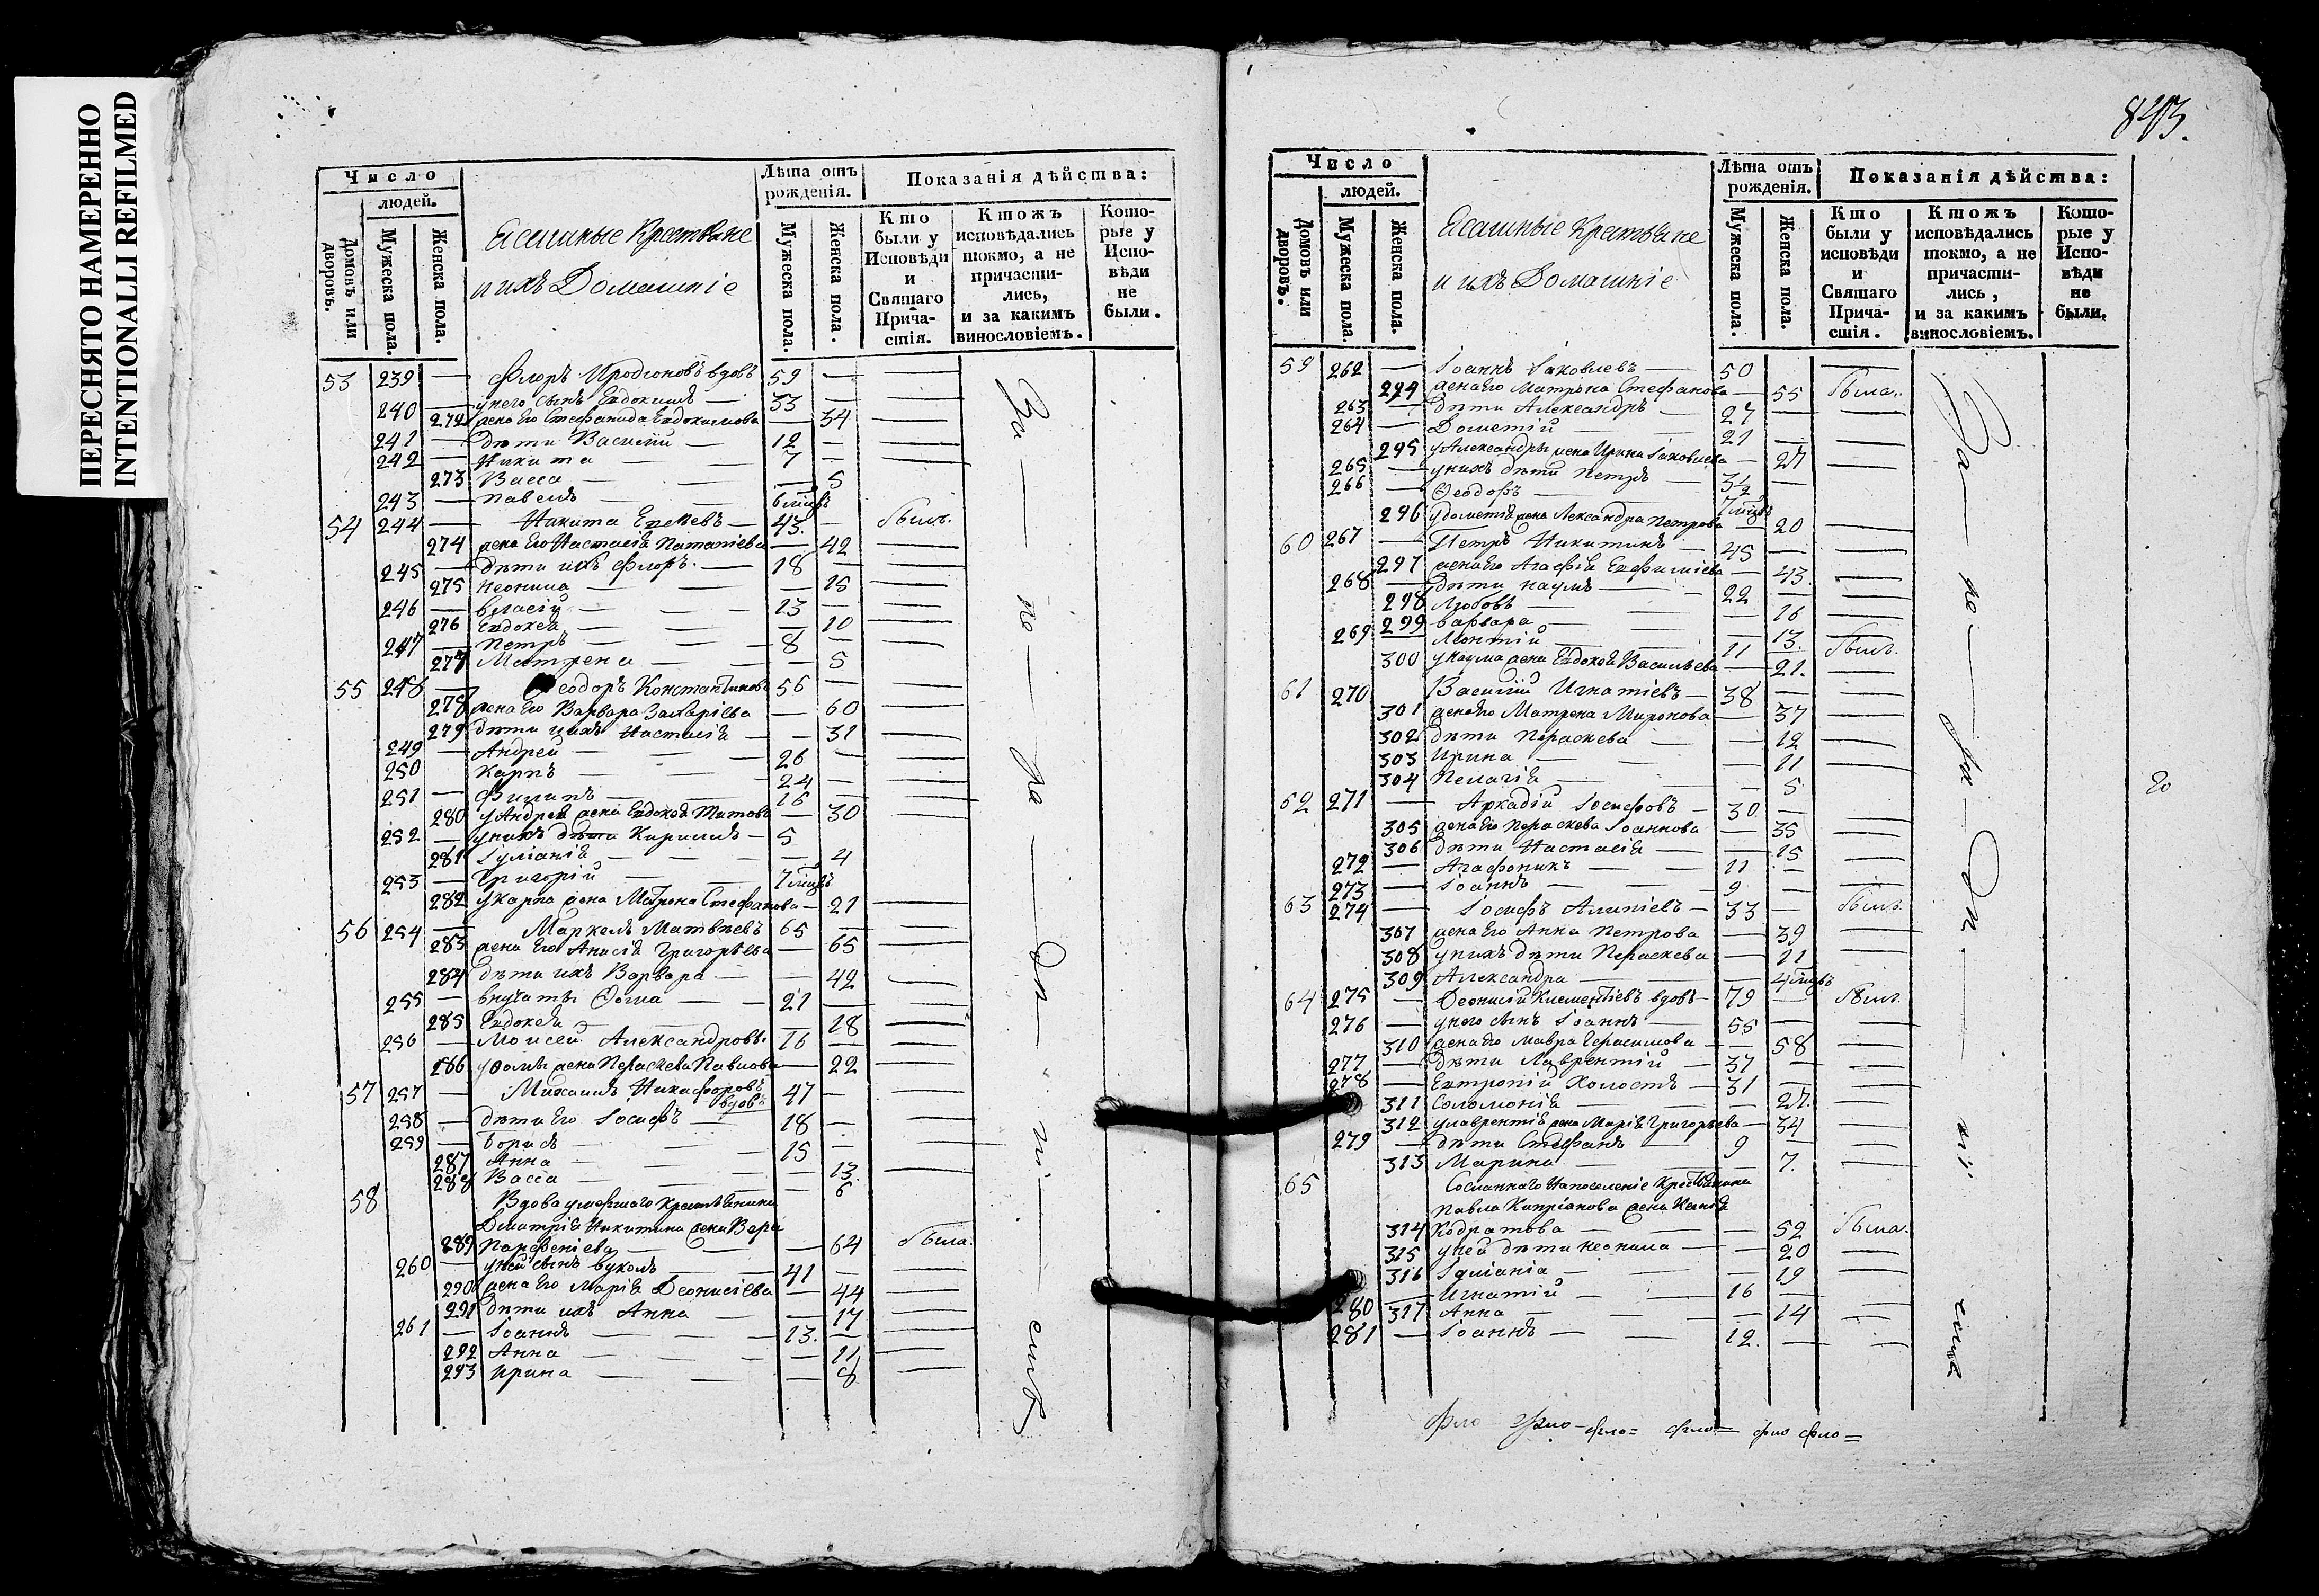 ПЕРЕСНЯТО НАМЕРЕННО
INTENTIONALLI REFILMED
Число
людей.
Домовъ или дворовъ.
Мужеска пола.
Женска пола.
Ясашные Крестьяне
и ихъ Домашніе
Лѣта отъ рожденія.
Мужеска пола.
Женска пола.
Показанія дѣйства:
Кто были у Исповѣди и Святаго Прича-стія.
Ктожъ исповѣдались токмо, а не причасти-лись, и за какимъ винословіемъ.
Кото-рые у Испо-вѣди не были.
53 239 — Флоръ Иродіоновъ вдовъ 59 —
240 — у него сынъ Евдокимъ — 33 —
272 жена его Стефанида Евдокимова — 34
241 — дѣти Василій — 12 —
242 — Никита — 7 —
273 Васса — 5
243 — Павелъ — 6 мцовъ
54 244 — Никита — 43. — былъ.
274 жена его Настасія — 42
245 — дѣти ихъ Флоръ. — 18 —
275 Неонила — 15
246 — Власій — 13 —
276 Евдокея — 10
247 — Петръ — 8 —
277 Матрена — 5
55 248 — Ѳеодоръ Константиновъ 56 —
278 жена его Варвара Захаріева — 60
279 дѣти ихъ Настасія — 31
249 — Андрей — 26 —
250 Карпъ — 24 —
251 — Филипъ — 16 —
280 у Андрея жена Евдокея Титова — 30
252 — у нихъ дѣти Кириллъ — 5
281 Іуліанія — 4
253 — Григорій — 7 мцовъ
282 у Карпа жена Матрона Стефанова — 21
56 254 — Маркелъ Матвѣевъ 65 —
283 жена его Анисія Григорьева — 65
284 дѣти ихъ Варвара — 42
255 — внучаты Ѳома — 21 —
285 Евдокея — 18
256 — Моисей Александровъ 16 —
286 у Ѳомы жена Параскева Павлова — 22
57 257 — Михаилъ Никифоровъ вдовъ 47 —
258 — дѣти его Іосифъ — 18 —
259 — Борисъ — 15 —
287 Анна — 13.
288 Васса — 6
58 Вдова умершаго Крестьянина
Дмитрія Никитина жена Вера
289 Парфеніева — 64 была.
260 — у ней сынъ Вуколъ — 41 —
290 жена его Марія Деонисіева — 44
291 дѣти ихъ Анна — 17
261 — Іоаннъ — 13. —
292 Анна — 11
293 Ирина — 8
За — по — ра — дѣ — ні — емъ
843.
Число
людей.
Домовъ или дворовъ.
Мужеска пола.
Женска пола.
Ясашные Крестьяне
и ихъ Домашніе
Лѣта отъ рожденія.
Мужеска пола.
Женска пола.
Показанія дѣйства:
Кто были у исповѣди и Святаго Прича-стія.
Ктожъ исповѣдались токмо, а не причасти-лись, и за какимъ винословіемъ.
Кото-рые у Испо-вѣди не были.
59 262 — Іоаннъ Іаковлевъ — 50
294 жена его Матрона Стефанова — 55 была.
263 — дѣти Александръ — 27 —
264 — Дометій — 21 —
295 у Александры жена Ирина Іаковлева — 27
265 — у нихъ дѣти Петръ — 3½ —
266 — Ѳеодоръ — 7 мцовъ
296 у Дометія жена Александра Петрова — 20
60 267 — Петръ Никитинъ — 45 —
297 жена его Агафія Евфиміева — 43.
268 — дѣти Наумъ — 22 —
298 Любовь — 16
299 Варвара — 13.
269 — Леонтій — 11 — былъ.
300 у Наума жена Евдокея Васильева — 21.
61 270 Василій Игнатіевъ — 38 —
301 жена его Матрена Миронова — 37
302 дѣти Параскева — 12
303 Ирина — 11
304 Пелагія — 5
62 271 — Аркадій Іосифовъ — 30 —
305 жена его Параскева Іоаннова — 35
306 дѣти Настасія — 15
272 — Агафоникъ — 11 —
273 — Іоаннъ — 9 —
63 274 — Іосифъ Алипіевъ — 33 — былъ.
307 жена его Анна Петрова — 39
308 у нихъ дѣти Параскева — 11
309 Александра — 4 мцовъ
64 275 — Деонисій Климентіевъ вдовъ — 79 — былъ.
276 — у него сынъ Іоаннъ — 55 —
310 жена его Мавра Герасимова — 58
277 — дѣти Лаврентій — 37 —
278 — Евтропій холостъ — 31 —
311 Соломонія — 27.
312 у Лаврентія жена Марія Григорьева — 34
279 — дѣти Стефанъ — 9 —
313 Марина — 7.
65 Сосланнаго на поселеніе Крестьянина
Павла Кипріанова жена Ксенія
314 Кодратова — 52 была.
315 у ней дѣти Неонила — 20
316 Іуліанія — 19
280 — Игнатій — 16 —
317 Анна — 14
281 — Іоаннъ — 12. —
За — по — ра — дѣ — ні — емъ